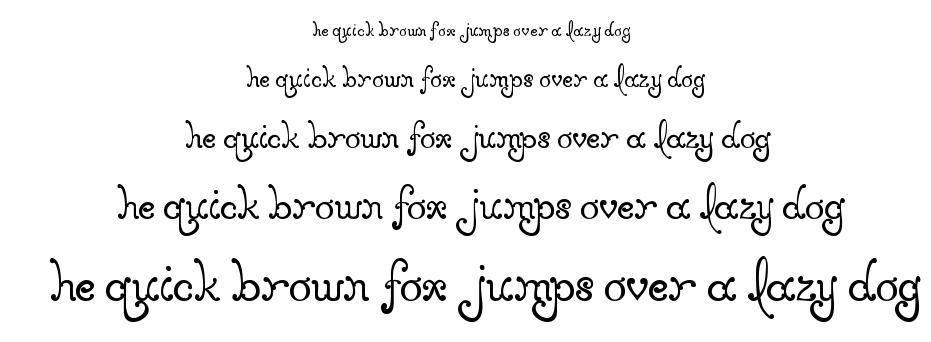 he quick brown fox jumps over a lazy dog
he quick brown fox jumps over a lazy dog
he quick brown fox jumps over a lazy dog
he quick brown fox jumps over a lazy dog
he quick brown fox jumps over a lazy dog